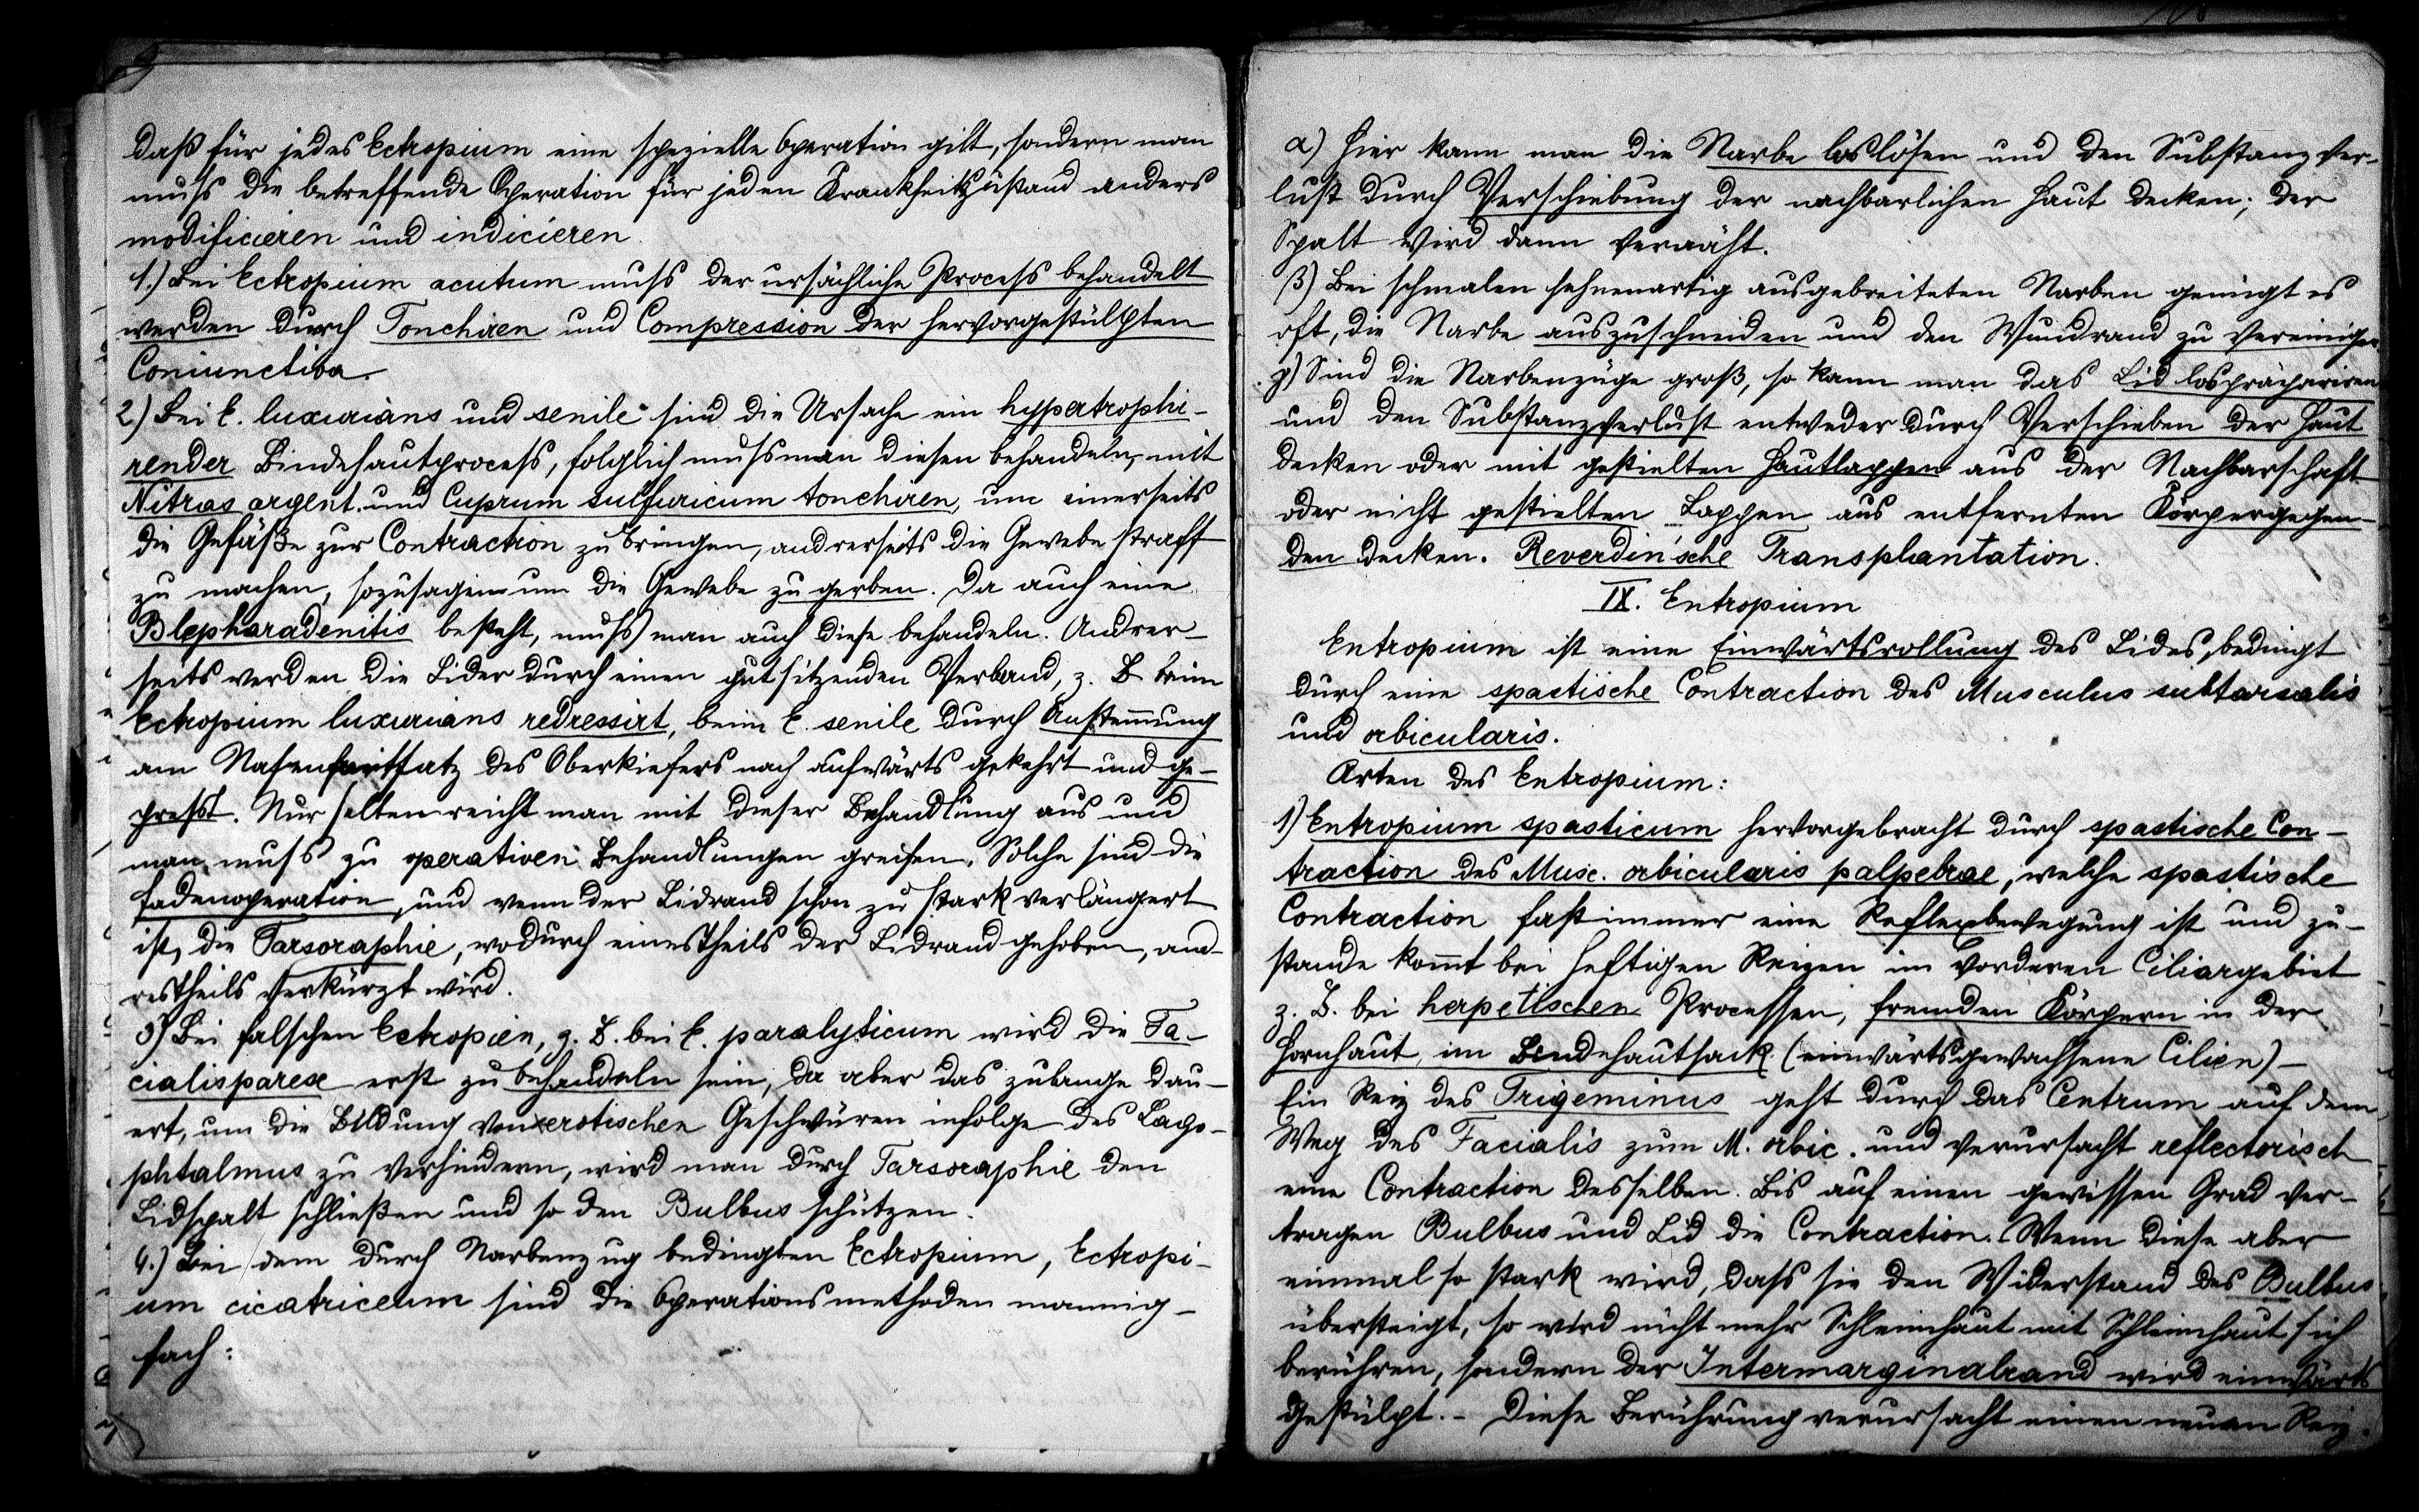 daß für jedes Ectropium eine spezielle Operation gilt, sondern man
muss die betreffende Operation für jeden Krankheitszustand anders
modificieren und indicieren.
1.) Bei Ectropium acutum muss der ursächliche Process behandelt
werden durch Tonchiren und Compression der hervorgestülpten
Coniunctiva.
2) Bei E. luxurians und senile sind die Ursache ein hypertrophi-
render Bindehautprocess, folglich muss man diesen behandeln, mit
Nitras argent. und Cuprum sulfuricum tonchiren, um einerseits
die Gefäße zur Contraction zu bringen, andrerseits die Gewebe straff
zu machen, sozusagen um die Gewebe zu gerben. Da auch eine
Blepharadenitis besteht, muss man auch diese behandeln. Andrer-
seits werden die Lider durch einen gutsitzenden Verband, z. B. beim
Ectropium luxurians redressirt, beim E. senile durch Anstem̄ung
am Nasenfortsatz des Oberkiefers nach aufwärts gekehrt und ge-
presst. Nur selten reicht man mit dieser Behandlung aus und
man muss zu operativen Behandlungen greifen. Solche sind die
Fadenoperation, und wenn der Lidrand schon zu stark verlängert
ist, die Tarsoraphie, wodurch einestheils der Lidrand gehoben, and-
restheils verkürzt wird.
3) Bei falschen Ectropien, z. B. bei E. paralyticum wird die Fa-
cialisparese erst zu behandeln sein, da aber das zulange dau-
ert, um die Bildung von xerotischen Geschwüren infolge des Lago-
phtalmus zu verhindern, wird man durch Tarsoraphie den
Lidspalt schließen und so den Bulbus schützen.
4.) Bei dem durch Narbenzug bedingten Ectropium, Ectropi-
um cicatriceum sind die Operationsmethoden mannig-
fach:
α) Hier kann man die Narbe loslösen und den Substanzver-
lust durch Verschiebung der nachbarlichen Haut decken; der
Spalt wird dann vernäht.
β) Bei schmalen sehnenartig ausgebreiteten Narben genügt es
oft, die Narbe auszuschneiden und den Wundrand zu vereinigen
γ) Sind die Narbenzüge groß, so kann man das Lid lospräpariren
und den Substanzverlust entweder durch Verschieben der Haut
decken oder mit gestielten Hautlappen aus der Nachbarschaft
oder nicht gestielten Lappen aus entfernten Körpergegen-
den decken. Reverdin'sche Transplantation.
IX. Entropium
Entropium ist eine Einwärtsrollung des Lides, bedingt
durch eine spastische Contraction des Musculus subtarsalis
und orbicularis.
Arten des Entropium:
1) Entropium spasticum hervorgebracht durch spastische Con-
traction des Musc. orbicularis palpebrae, welche spastische
Contraction fast immer eine Reflexbewegung ist und zu-
stande kom̄t bei heftigen Reizen im vorderen Ciliargebiet
z. B. bei herpetischen Processen, fremden Körpern in der
Hornhaut, im Bindehautsack (einwärtsgewachsene Cilien) -
Ein Reiz des Trigeminus geht durch das Centrum auf dem
Weg des Facialis zum M. orbic. und verursacht reflectorisch
eine Contraction desselben. Bis auf einen gewissen Grad ver-
tragen Bulbus und Lid die Contraction. Wenn diese aber
einmal so stark wird, dass sie den Widerstand des Bulbus
übersteigt, so wird nicht mehr Schleimhaut mit Schleimhaut sich
berühren, sondern der Intermarginalrand wird einwärts
gestülpt. - Diese Berührung verursacht einen neuen Reiz.